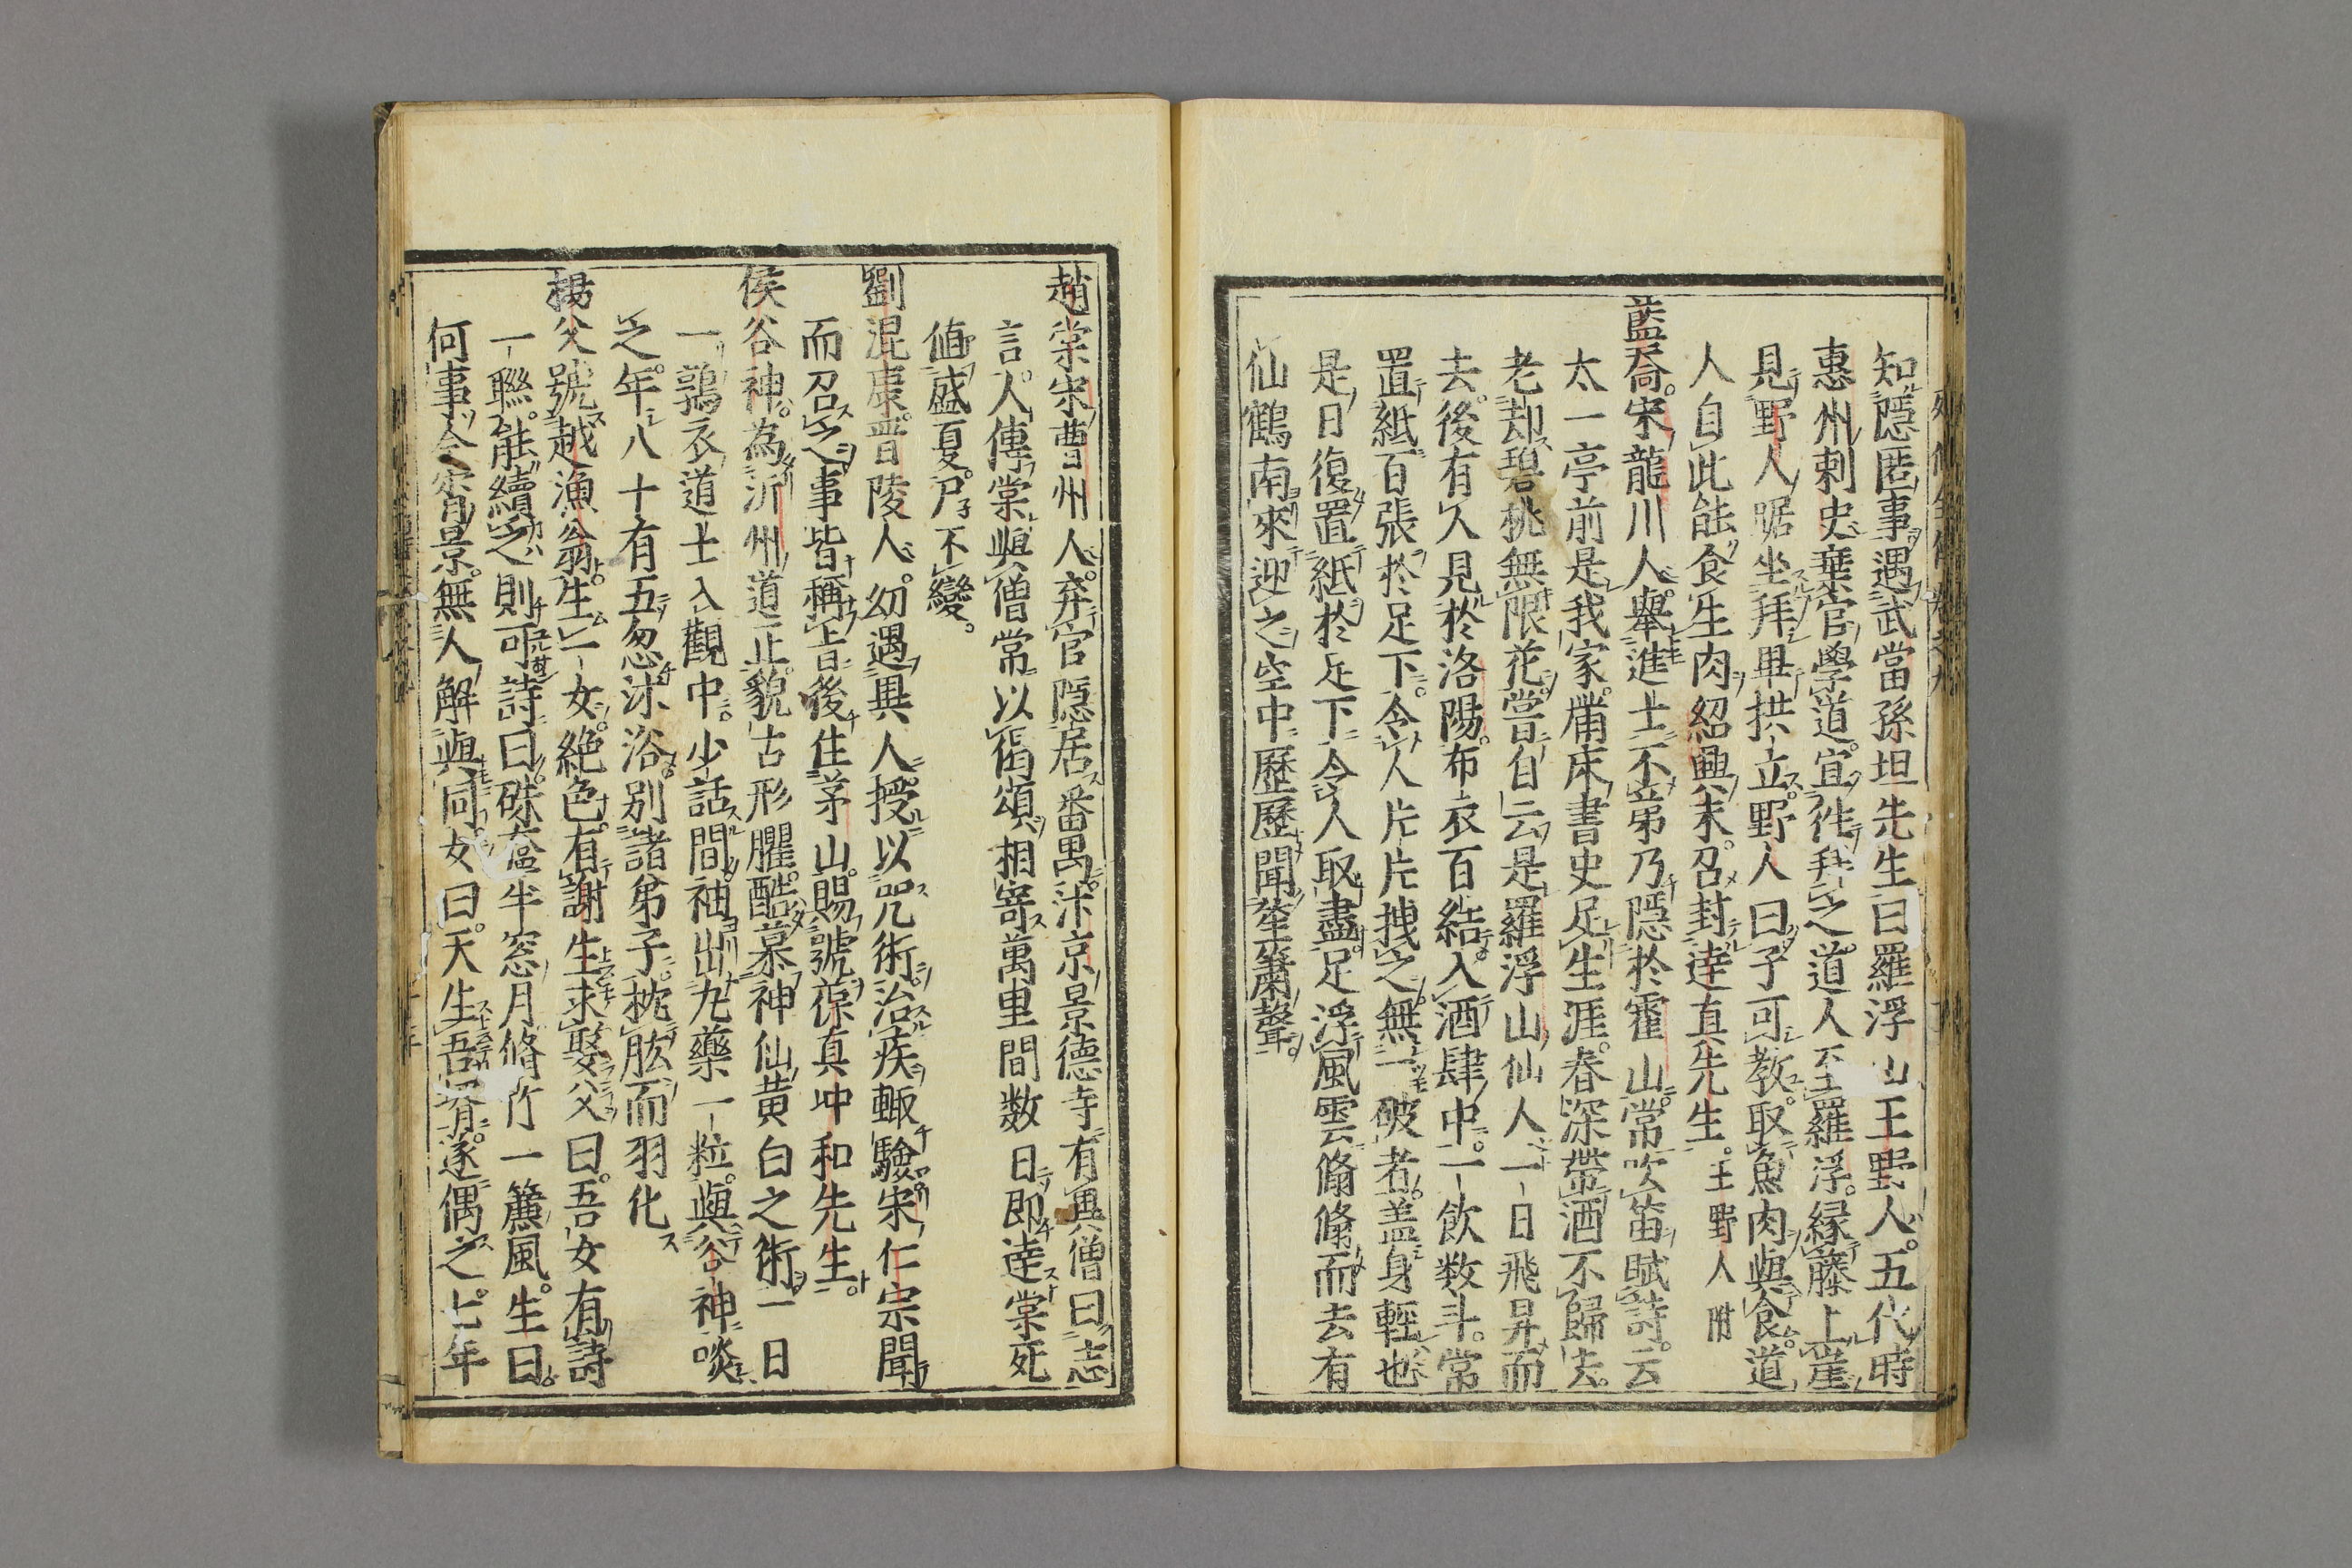 知隱匿事遇武當孫坦先生曰羅浮山王野人五代時
惠州刺史棄官學道宜徃拜之道人至羅浮縁藤上崖
見野人踞坐拜畢拱立野人曰子可教取魚肉與食道
人自此能食生肉紹興末召封達真先生王野人附
藍喬宋龍川人舉進士不第乃隱於霍山常吹笛賦詩云
太一亭前是我家滿床書史足生涯春深帶酒不歸去
老却碧桃無限花嘗自云是羅浮山仙人一日飛昇而
去後有人見於洛陽布衣百結入酒肆中一飲数斗常
置紙百張於足下令人片片拽之無一破者盖身輕也
是日復置紙於足下令人取盡足浮風雲翛翛而去有
仙鶴南來迎之空中歷歷聞笙簫聲
趙棠宋曹州人弃官隠居番禺汴京景德寺有異僧曰志
言人傳棠與僧常以偈頌相寄萬里間数日即達棠死
値盛夏尸不變
劉混康晋陵人幼遇異人授以咒術治疾輙驗宋仁宗聞
而召之事皆稱旨後住茅山賜號葆真冲和先生
侯谷神為沂州道正貌古形臞酷慕神仙黄白之術一日
一鶉衣道士入觀中少話間袖出九藥一粒與谷神啖
之年八十有五忽沐浴别諸弟子枕肱而羽化
楊父號越漁翁生一女絶色有謝生求娶父曰吾女有詩
一聯能續之則可詩曰硃𥂁半窓月脩竹一簾風生曰
何事今宵景無人解與同女曰天生吾壻遂偶之七年